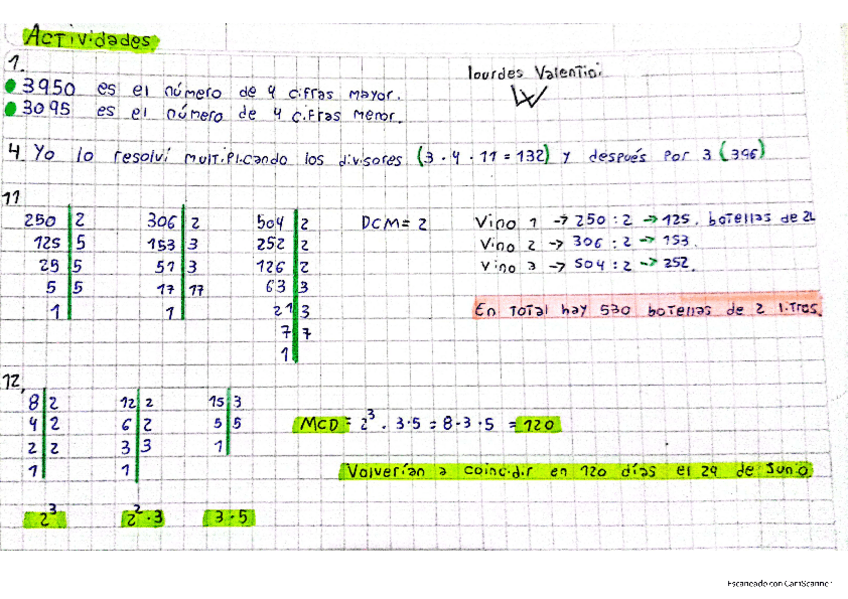 Actividades
1.
lourdes Valentini
3950 es el número de 4 cifras mayor.
3095 es el número de 4 cifras menor.
4 Yo lo resolví multiplicando los divisores (3 · 4 · 11 = 132) y después por 3 (396)
11
250 | 2
125 | 5
25 | 5
5 | 5
1
306 | 2
153 | 3
51 | 3
17 | 17
1
504 | 2
252 | 2
126 | 2
63 | 3
21 | 3
7 | 7
1
DCM = 2
Vino 1 → 250 : 2 → 125. botellas de 2L
Vino 2 → 306 : 2 → 153.
Vino 3 → 504 : 2 → 252.
En total hay 530 botellas de 2 litros.
12.
8 | 2
4 | 2
2 | 2
1
2³
12 | 2
6 | 2
3 | 3
1
2² · 3
15 | 3
5 | 5
1
3 · 5
MCD = 2³ · 3 · 5 = 8 · 3 · 5 = 120
Volverían a coincidir en 120 días el 29 de Junio
Escaneado con CamScanner